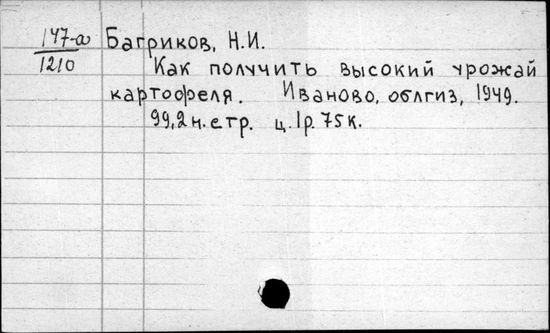 147-а Багриков, Н.И.
1210 Как получить высокий урожай
картофеля. Иваново, облгиз, 1949.
99,2н.стр. ц.1р.75к.